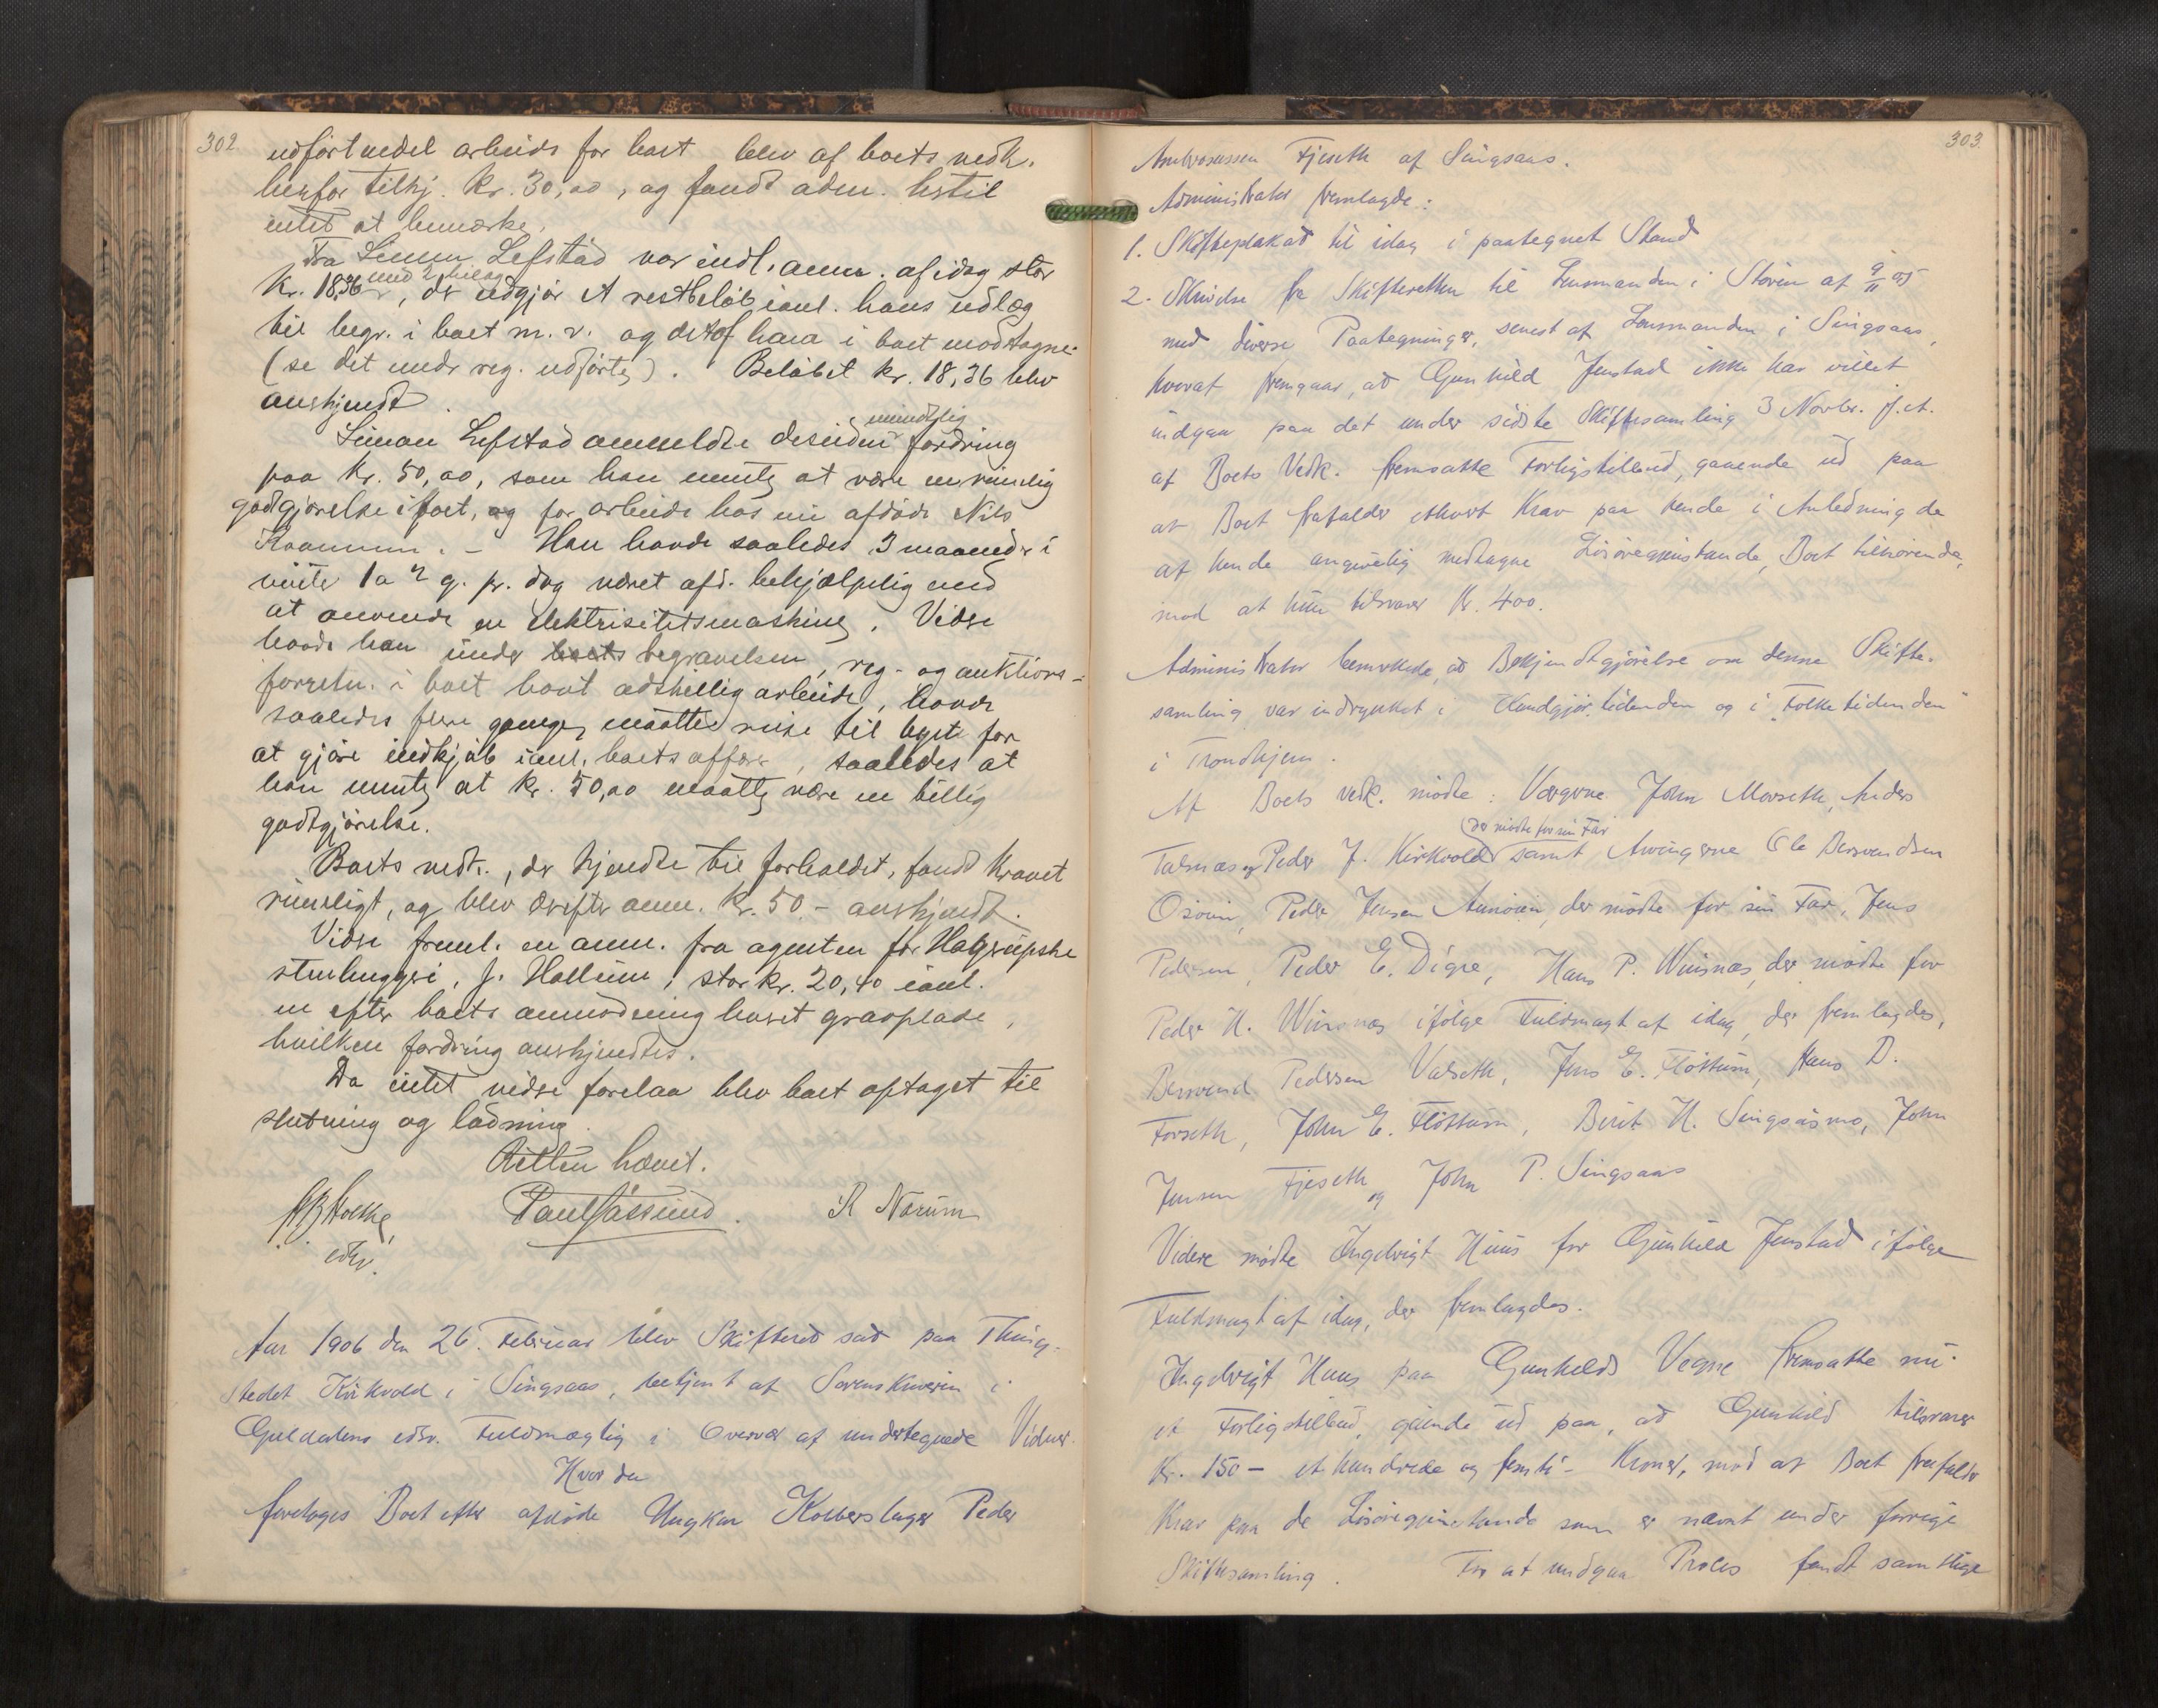 302
udført uedel arbeide for boet blev af boets vedk.
herfor tilkj. kr. 30,00, og fandt adm. hertil
intet at bemærke.
Fra Simon Lefstad var indl. anm. af idag stor
kr. 18,36 med 2 bilag, der udgjør et restbeløb ianl. hans udlæg
til begr. i boet m. v. og det af ham i boet modtagne
(se det under reg. udførte). Beløbet kr. 18,36 blev
anerkjendt.
Simon Lefstad anmeldte desuden mundtlig fordring
paa kr. 50,00, som han mente at være en rimelig
godtgjørelse i boet, og for arbeide hos nu afdøde Nils
Kraammen. - Han havde saaledes 3 maaneder i
vinter 1 a 2 g. pr. dag været afd. behjælpelig med
at anvende en elektrisitetsmaskine. Videre
havde han under boets begravelsen, reg- og auktions-
forretn. i boet havt adskillig arbeide, havde
saaledes flere gange maattet reise til byen for
at gjøre indkjøb ianl. boets affære, saaledes at
han mente at kr. 50,00 maatte være en billig
godtgjørelse.
Boets vedk., der kjendte til forholdet, fandt kravet
rimeligt, og blev derefter anm. kr. 50.- anerkjendt.
Videre freml. en anm. fra agenten for Hagrupske
stenhuggeri, J. Hallum, stor kr. 20,40 ianl.
en efter boets anmodning leveret gravplade,
hvilken fordring anerkjendtes.
Da intet videre forelaa blev boet optaget til
slutning og lodning.
Retten hævet.
Paul Gåssund. R Norum
edsv.
Aar 1906 den 26. Februar blev Skifteret sat paa Thing-
stedet Kirkvold i Singsaas, betjent af Sorenskriveren i
Guldalens edsv. Fuldmægtig i Overvær af undertegnede Vidner.
Hvor da
foretoges Boet efter afdøde Ungkar Kobberslager Peder
303
Ambrosussen Fjeseth af Singsaas.
Administrator fremlagde:
1. Skifteplakat til idag i paategnet Stand
2. Skrivelse fra Skifteretten til Lensmanden i Støren af 9/11 05
med diverse Paategninger, senest af Lensmanden i Singsaas,
hvoraf fremgaar, at Gunhild Jenstad ikke har villet
indgaa paa det under sidste Skiftesamling 3 Novbr. f. A.
af Boets Vedk. fremsatte Forligstilbud, gaaende ud paa
at Boet frafalder ethvert Krav paa hende i Anledning de
af hende angivelig medtagne Løsøregjenstande, Boet tilhørende,
mod at hun tilsvarer Kr. 400.
Administrator bemærkede, at Bekjendtgjørelse om denne Skifte-
samling var indrykket i Kundgjør.tidenden og i "Folketidenden"
i Trondhjem.
Af Boets vedk. mødte: Værgerne John Morseth, Anders
Talsnæs og Peder J. Kirkvold (der mødte for sin Far) samt Arvingerne Ole Bersvendsen
Osøien, Peder Jensen Aunøien, der mødte for sin Far, Jens
Pedersen, Peder E. Digre, Hans P. Winsnæs, der mødte for
Peder H. Winsnæs ifølge Fuldmagt af idag, der fremlagdes,
Bersvend Pedersen Valseth, Jens E. Fløttum, Hans D.
Forseth, John E. Fløttum, Berit H. Singsåsmo, John
Jensen Fjeseth og John P. Singsaas
Videre mødte Ingebrigt Huus for Gunhild Jenstad ifølge
Fuldmagt af idag, der fremlagdes.
Ingebrigt Huus paa Gunhilds Vegne fremsatte nu
et Forligstilbud, gående ud paa, at Gunhild tilsvarer
Kr. 150 - et hundrede og femti - Kroner, mod at Boet frafalder
Krav paa de Løsøregjenstande som er nævnt under forrige
Skiftesamling. For at undgaa Proces fandt samtlige